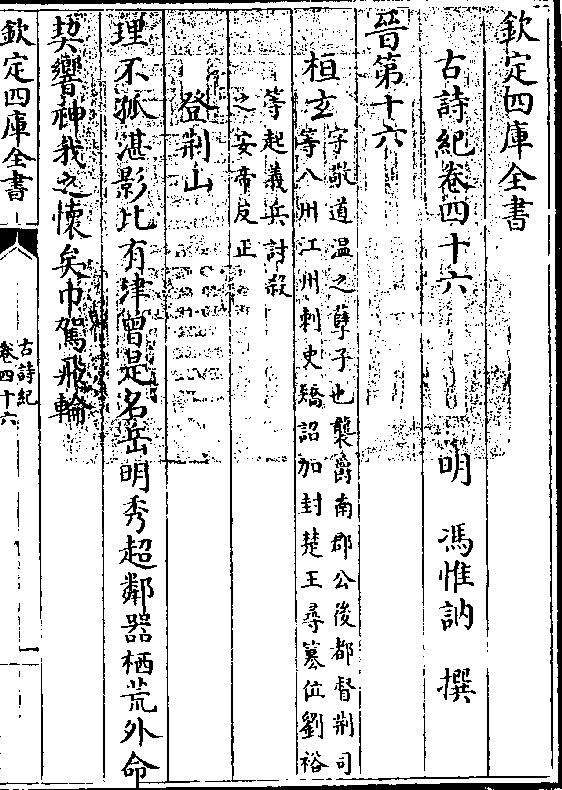 欽定四庫全書
古詩紀卷四十六　明　馮惟訥　撰
晉第十六
桓玄
字敬道溫之孽子也襲爵南郡公後都督荆司
等八州江州刺史矯詔加封楚王尋簒位劉裕
等起義兵討殺
之安帝反正
登荆山
理不孤湛影比有津曾是名岳明秀超鄰器栖荒外命
契響神我之懷矣巾駕飛輪
欽定四庫全書
古詩紀
卷四十六
一